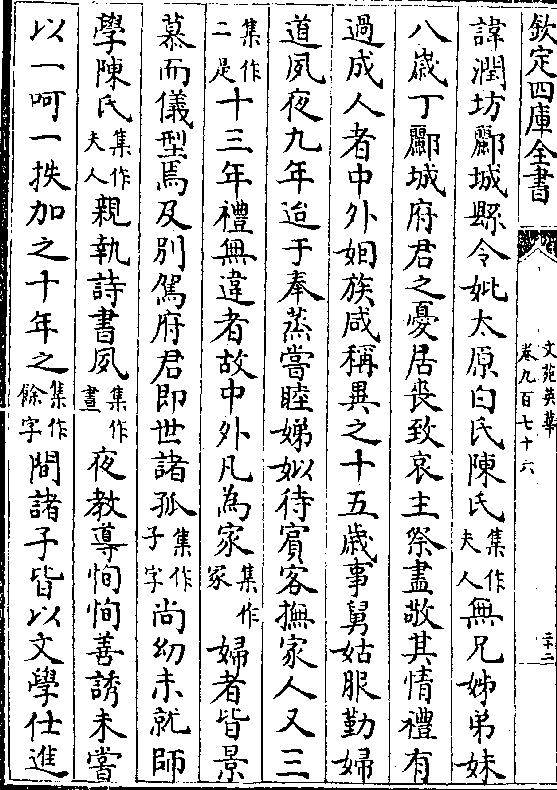 欽定四庫全書
文苑英華
卷九百七十六
三十二
諱潤坊鄜城縣令妣太原白氏陳氏集作夫人無兄姊弟妹
八歲丁鄜城府君之憂居喪致哀主祭盡敬其情禮有
過成人者中外姻族咸稱異之十五歲事舅姑服勤婦
道夙夜九年迨于奉蒸嘗睦娣姒待賓客撫家人又三
集作二是十三年禮無違者故中外凡為家集作冢婦者皆景
慕而儀型焉及别駕府君即世諸孤集作子字尚幼未就師
學陳氏集作夫人親執詩書夙集作晝夜教導恂恂善誘未嘗
以一呵一挟加之十年之集作餘字間諸子皆以文學仕進